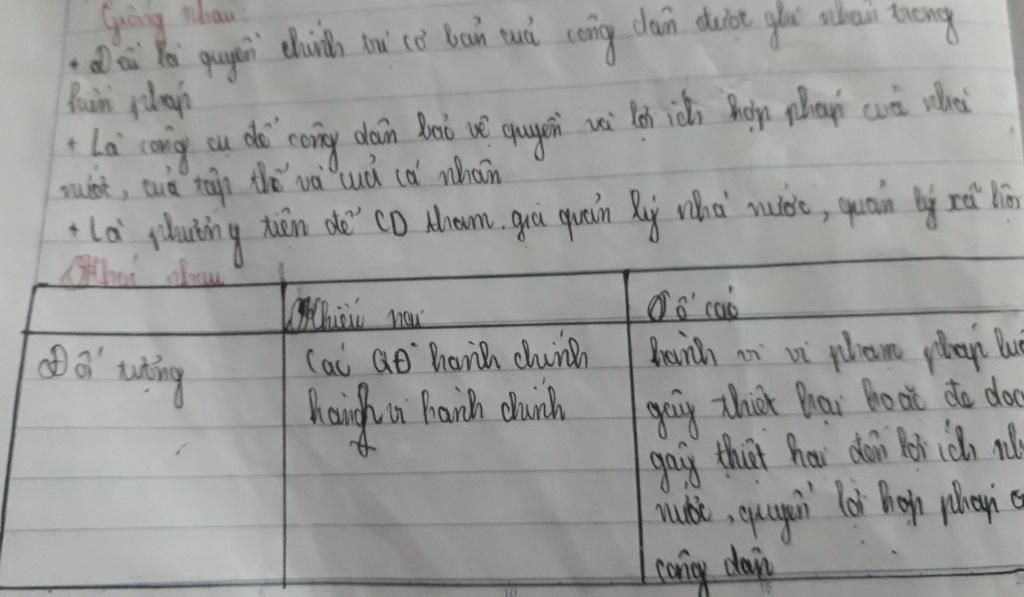 Giống nhau:
+ Đều là quyền chính trị cơ bản của công dân được ghi nhận trong
hiến pháp
+ Là công cụ để công dân bảo vệ quyền và lợi ích hợp pháp của nhà
nước, của tập thể và của cá nhân
+ Là phương tiện để CD tham gia quản lý nhà nước, quản lý xã hội
Khác nhau
Khiếu nại
Tố cáo
Đối tượng
Các QĐ hành chính
hành vi hành chính
hành vi vi phạm pháp luậ
gây thiệt hại hoặc đe doạ
gây thiệt hại đến lợi ích nh
nước, quyền lợi hợp pháp c
công dân